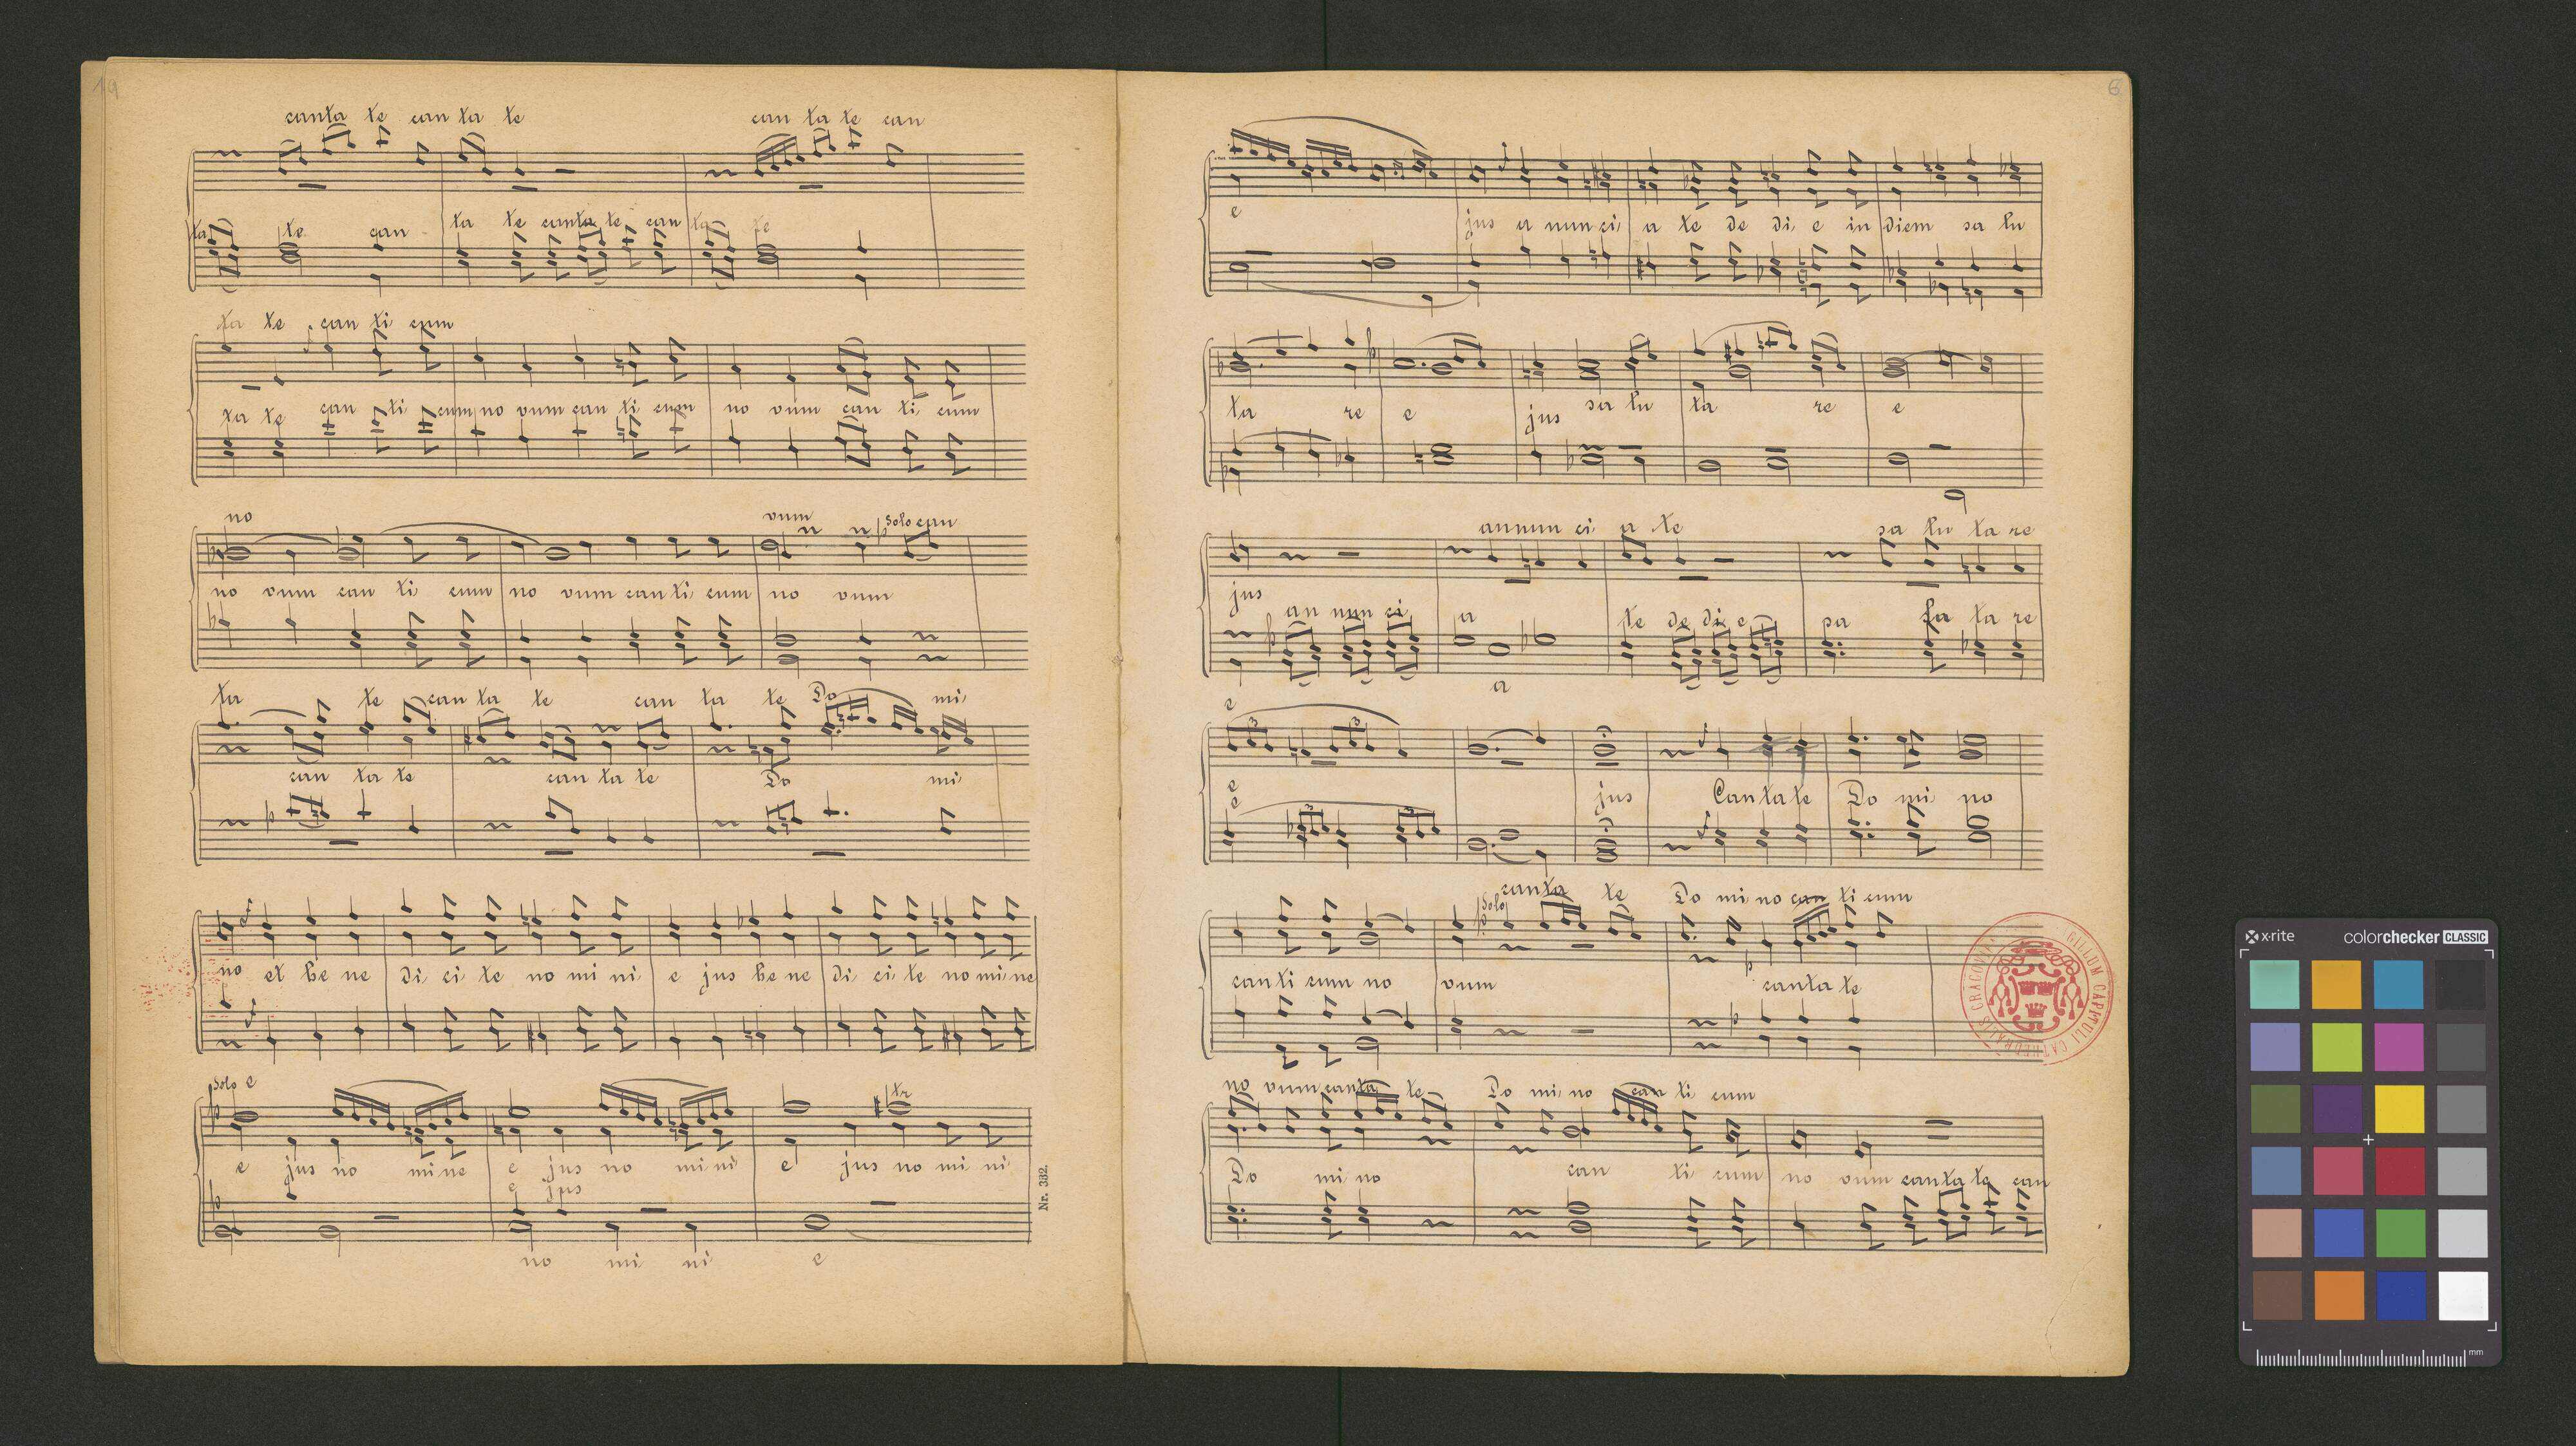 19
canta te can ta te can ta te can
ta te can ta te canta te can ta te
ta te can ti cum
ta te can ti cum no vum can ti cum no vum can ti cum
no vum Solo can
no vum can ti cum no vum can ti cum no vum
ta te can ta te can ta te Do mi
can ta te can ta te Do mi
no et be ne di ci te no mi ni e jus be ne di ci te no mi ne
Solo e
e jus no mi ne e jus no mi ni e jus no mi ni
e jus
no mi ni e
Nr. 332.
6
e jus a nun ci a te de di e in diem sa lu
ta re e jus sa lu ta re e
annun ci a te sa lu ta re
jus
an nun ci a te de di e sa ta re
a
e
3 3
e jus Cantate Do mi no
e
3 3
Solo canta te Do mi no can ti cum
can ti cum no vum canta te
SIGILLUM CAPITULI CATHEDRALIS CRACOVIEN
no vum canta te Do mi no can ti cum
Do mi no can ti cum no vum canta te can
x·rite colorchecker CLASSIC
mm